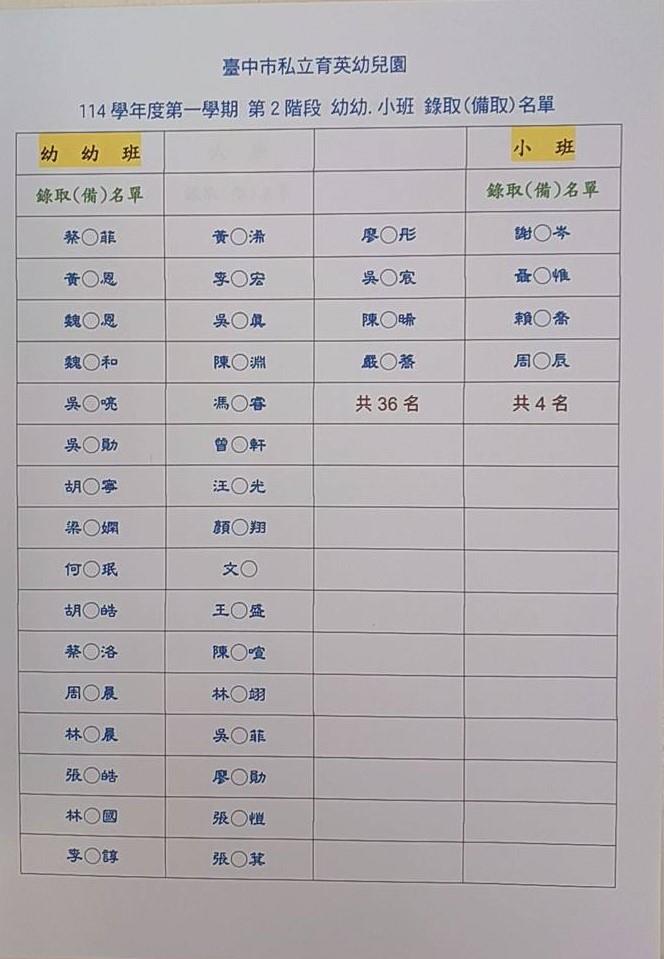 臺中市私立育英幼兒園
114 學年度第一學期 第 2 階段 幼幼. 小班 錄取(備取)名單
幼 幼 班 小 班
錄取(備)名單 錄取(備)名單
蔡○菲 黃○浠 廖○彤 謝○岑
黃○恩 李○宏 吳○宸 聶○惟
魏○恩 吳○真 陳○晞 賴○喬
魏○和 陳○淵 嚴○蕎 周○辰
吳○喨 馮○睿 共 36 名 共 4 名
吳○勛 曾○軒
胡○寧 汪○光
梁○嫻 顏○翔
何○珉 文○
胡○皓 王○盛
蔡○洛 陳○喧
周○晨 林○翊
林○晨 吳○菲
張○皓 廖○勛
林○國 張○愷
李○諄 張○萁